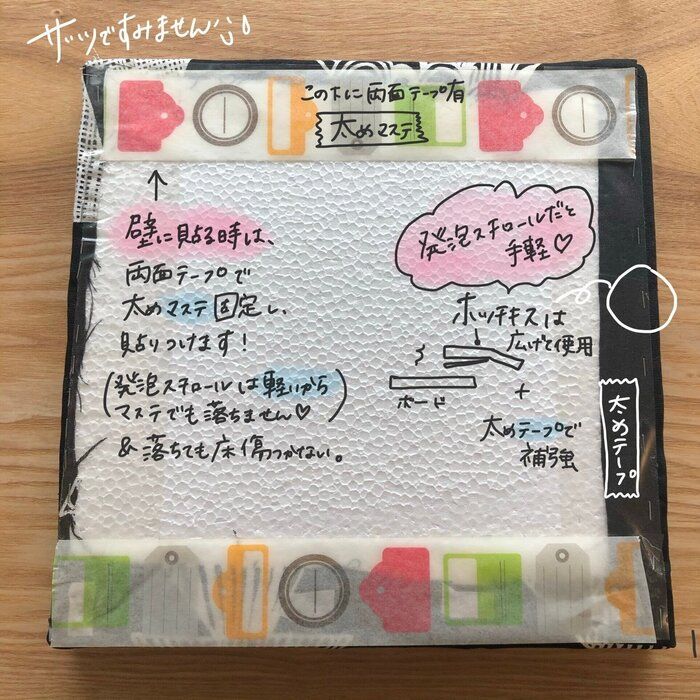 ザッツですみません
この下に両面テープ有
太めマステ
壁に貼る時は、
両面テープで
太めマステ固定し、
貼りつけます！
(発泡スチロールは軽いから
マステでも落ちません♡)
&落ちても床傷つかない。
発泡スチロールだと
手軽♡
ホッチキスは
広げて使用
ボード
+
太めテープで
補強
太めテープ